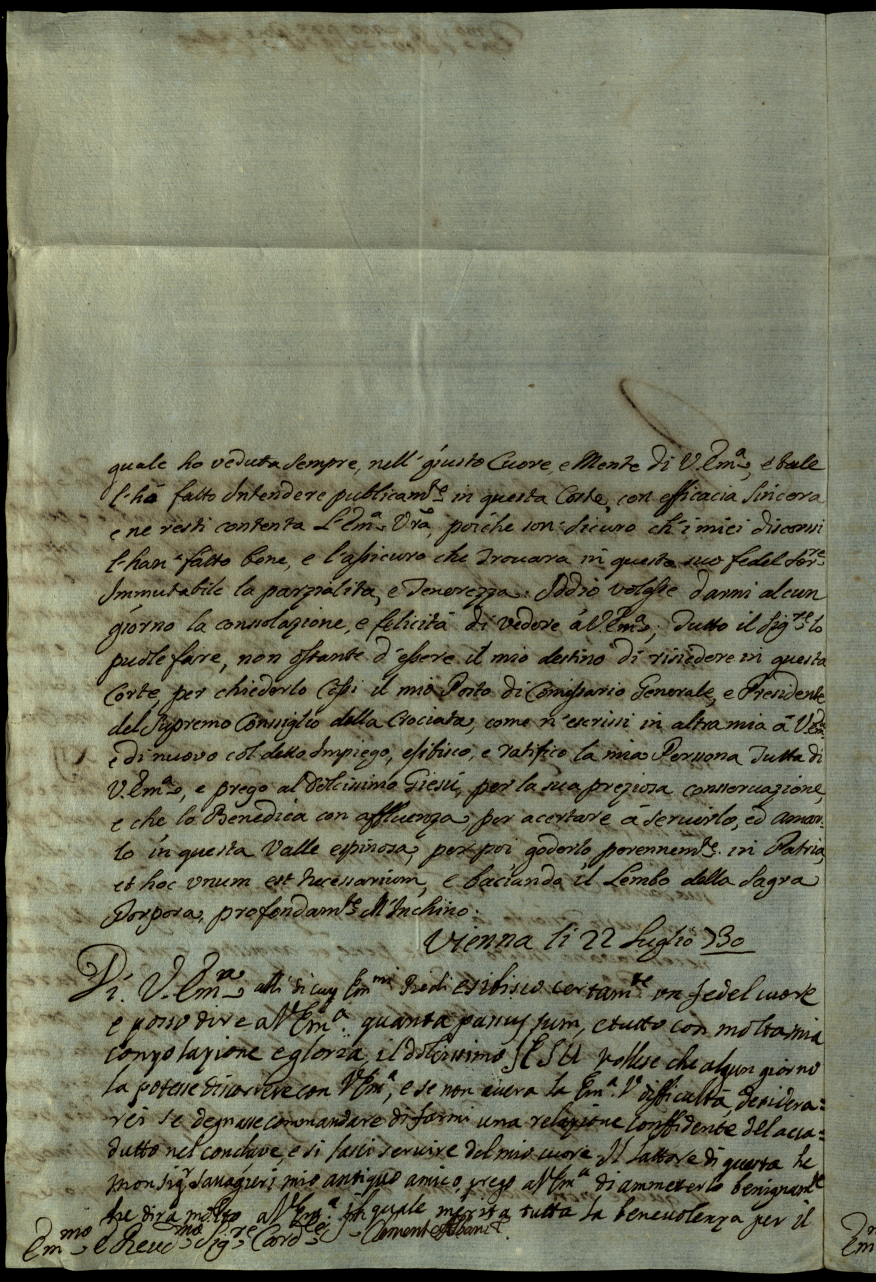 quale ho veduta sempre, nell' giusto Cuore, e Mente di V. Em.a, e tale
l'hà fatto Intendere publicam.te in questa Corte, con efficacia Sincera
e ne resti contenta L'Em.a V.ra, poiche son sicuro ch'i miei discorsi
l'han fatto bene, e l'assicuro che trovara in questo suo fedel Ser.re
Immutabile la parzialita, e tenerezza. Iddio volesse darmi alcun
giorno la consolazione, e felicità di vedere à V. Em.a; tutto il Sig.re lo
puole fare, non ostante d'essere il mio destino di risiedere in questa
Corte, per chiederlo Cosi il mio Posto di Comissario Generale, e Presidente
del Supremo Consiglio della Crociata, come n'escrissi in altra mia à V. Em.a
e di nuovo col detto Impiego, esibisco, e ratifico la mia Persona tutta di
V. Em.a, e prego al Dolcissimo Giesù, per la sua preziosa conservazione,
e che lo Benedica con affluenza, per acertare à servirlo, ed amar-
lo in questa Valle espinosa, per poi goderlo perennem.te in Patria,
et hoc unum est necessarium, e baciando il Lembo della Sagra
Porpora, profondam.te M'Inchino.
Vienna li 22 Luglio 730
Di V. Em.a alli di cuy Em.mi Piedi esibisco certam.te un fedel cuore
e posso dire a V. Em.a quanta passus sum, e tutto con molta mia
consolazione e gloria, il dolcissimo JESU vollese che algun giorno
la potesse discorrere con V. Em.a, e se non avera la Em.a V. difficultà, desidera=
rei se degnasse commandare di farmi una relazione conffidente del acca=
dutto nel conclave, e si lasci servire del mio cuore. Il lattore di questa he
Monsig.r mio antiguo amico, prego a V. Em.a di ammeterlo benignam.te
he dira molto a V. Em.a il quale merita tutta la benevolenza per il
Em.mo e Rev.mo Sig.re Card.le Clemente Albani